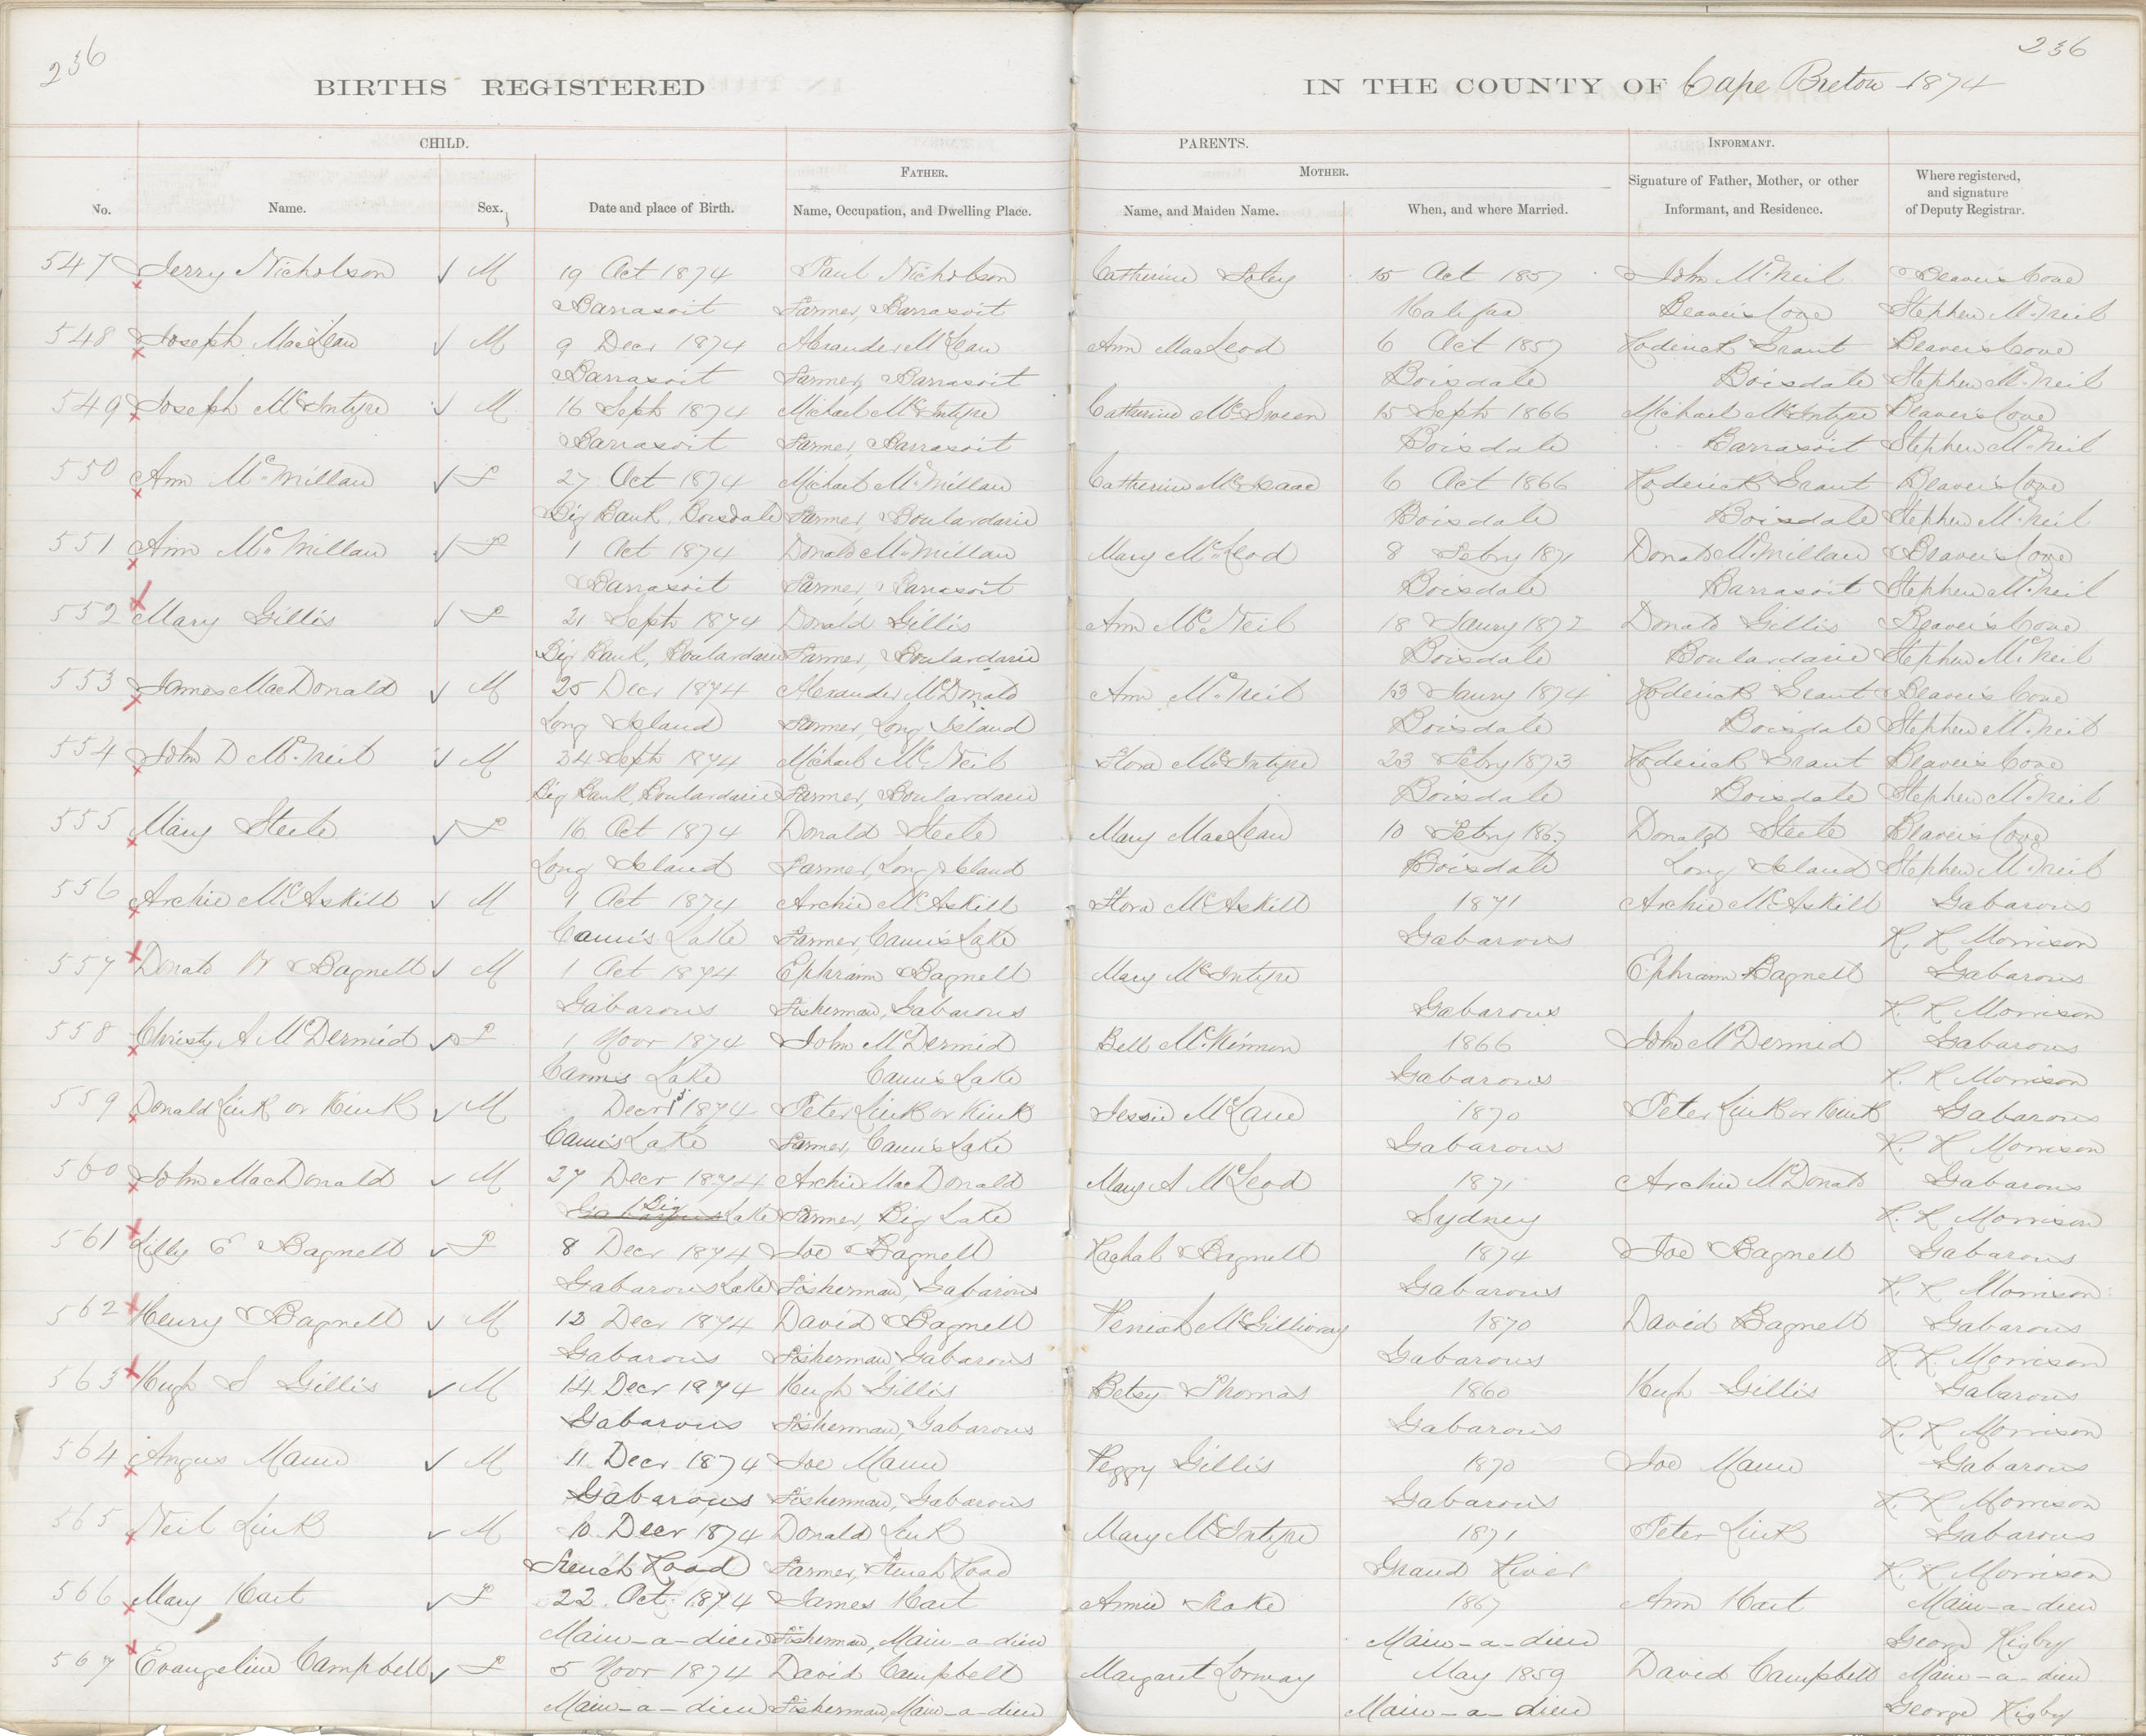 236
236
BIRTHS REGISTERED IN THE COUNTY OF Cape Breton 1874
CHILD. PARENTS. INFORMANT.
FATHER. MOTHER.
No. Name. Sex. Date and place of Birth. Name, Occupation, and Dwelling Place. Name, and Maiden Name. When, and where Married. Signature of Father, Mother, or other Informant, and Residence. Where registered, and signature of Deputy Registrar.
547 Jerry Nicholson M 19 Oct 1874 Paul Nicholson Catherine 15 Oct 1857 John McNeil Beaver's Cove
Barrasoit Farmer, Barrasoit Halifax Beaver's Cove Stephen McNeil
548 Joseph MacLean M 9 Decr 1874 Alexander McLean Ann MacLeod 6 Oct 1857 Roderick Grant Beaver's Cove
Barrasoit Farmer, Barrasoit Boisdale Boisdale Stephen McNeil
549 Joseph McIntyre M 16 Sept 1874 Michael McIntyre Catherine McSween 15 Sept 1866 Michael McIntyre Beaver's Cove
Barrasoit Farmer, Barrasoit Boisdale Barrasoit Stephen McNeil
550 Ann McMillan F 27 Oct 1874 Michael McMillan Catherine McIsaac 6 Oct 1866 Roderick Grant Beaver's Cove
Big Bank, Boisdale Farmer, Boulardarie Boisdale Boisdale Stephen McNeil
551 Ann McMillan F 1 Oct 1874 Donald McMillan Mary McLeod 8 Febry 1871 Donald McMillan Beaver's Cove
Barrasoit Farmer, Barrasoit Boisdale Barrasoit Stephen McNeil
552 Mary Gillis F 21 Sept 1874 Donald Gillis Ann McNeil 18 Jaury 1872 Donald Gillis Beaver's Cove
Big Bank, Boulardarie Farmer, Boulardarie Boisdale Boulardarie Stephen McNeil
553 James MacDonald M 25 Decr 1874 Alexander McDonald Ann McNeil 13 Jaury 1874 Roderick Grant Beaver's Cove
Long Island Farmer, Long Island Boisdale Boisdale Stephen McNeil
554 John D McNeil M 24 Sept 1874 Michael McNeil Flora McIntyre 23 Febry 1873 Roderick Grant Beaver's Cove
Big Bank, Boulardarie Farmer, Boulardarie Boisdale Boisdale Stephen McNeil
555 Mary Steele F 16 Oct 1874 Donald Steele Mary MacLean 10 Febry 1867 Donald Steele Beaver's Cove
Long Island Farmer, Long Island Boisdale Long Island Stephen McNeil
556 Archie McAskill M 9 Oct 1874 Archie McAskill Flora McAskill 1871 Archie McAskill Gabarous
Cann's Lake Farmer, Cann's Lake Gabarous R. R. Morrison
557 Donald Bagnell M 1 Oct 1874 Ephraim Bagnell Mary McIntyre Ephraim Bagnell Gabarous
Gabarous Fisherman, Gabarous Gabarous R. R. Morrison
558 Christy A McDermid F 1 Novr 1874 John McDermid Bell McKinnon 1866 John McDermid Gabarous
Canns Lake Cann's Lake Gabarous R. R. Morrison
559 Donald Link or Kink M Decr 1874 Peter Link or Kink Jessie McLane 1870 Peter Link or Kink Gabarous
Cann's Lake Farmer, Cann's Lake Gabarous R. R. Morrison
560 John MacDonald M 27 Decr 1874 Archie MacDonald Mary A McLeod 1871 Archie McDonald Gabarous
Gabarous Big Lake Farmer, Big Lake Sydney R. R. Morrison
561 Lilly E Bagnell F 8 Decr 1874 Joe Bagnell Rachal Bagnell 1874 Joe Bagnell Gabarous
Gabarous Lake Fisherman, Gabarous Gabarous R. R. Morrison
562 Henry Bagnell M 12 Decr 1874 David Bagnell Peniah McGillivray 1870 David Bagnell Gabarous
Gabarous Fisherman, Gabarous Gabarous R. R. Morrison
563 Hugh S Gillis M 14 Decr 1874 Hugh Gillis Betsy Thomas 1860 Hugh Gillis Gabarous
Gabarous Fisherman, Gabarous Gabarous R. R. Morrison
564 Angus Mann M 11 Decr 1874 Joe Mann Peggy Gillis 1870 Joe Mann Gabarous
Gabarous Fisherman, Gabarous Gabarous R. R. Morrison
565 Neil Link M 10 Decr 1874 Donald Link Mary McIntyre 1871 Peter Link Gabarous
French Road Farmer, French Road Grand River R. R. Morrison
566 Mary Hart F 22 Oct 1874 James Hart Annie 1867 Ann Hart Main-a-dieu
Main-a-dieu Fisherman, Main-a-dieu Main-a-dieu George Rigby
567 Evangeline Campbell F 5 Novr 1874 David Campbell Margaret Lorway May 1859 David Campbell Main-a-dieu
Main-a-dieu Fisherman, Main-a-dieu Main-a-dieu George Rigby